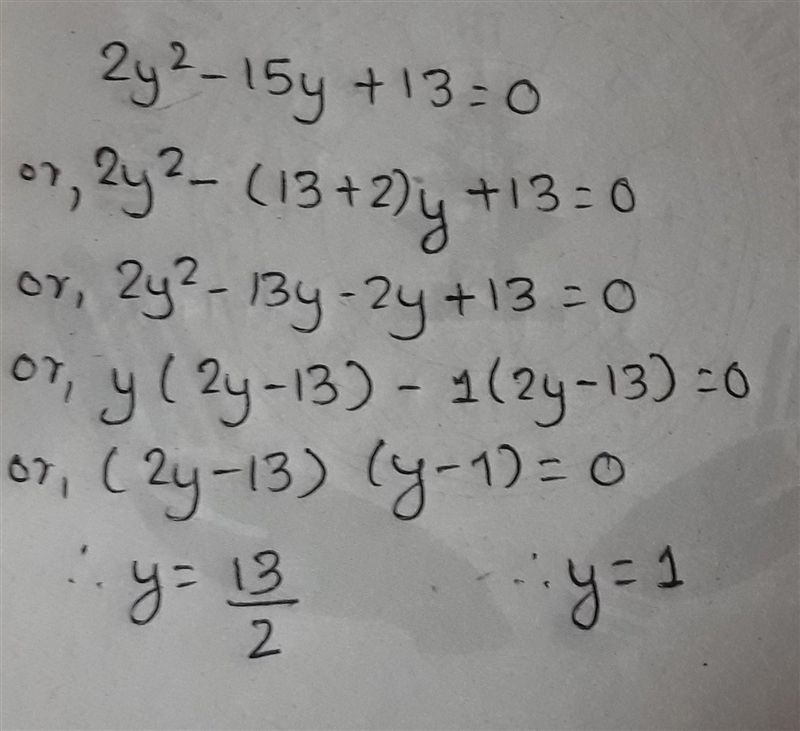 2y² - 15y + 13 = 0
or, 2y² - (13+2)y + 13 = 0
or, 2y² - 13y - 2y + 13 = 0
or, y(2y-13) - 1(2y-13) = 0
or, (2y-13) (y-1) = 0
∴ y = 13/2 ∴ y = 1